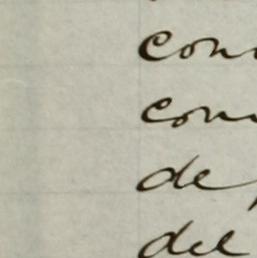 con
com
de
del